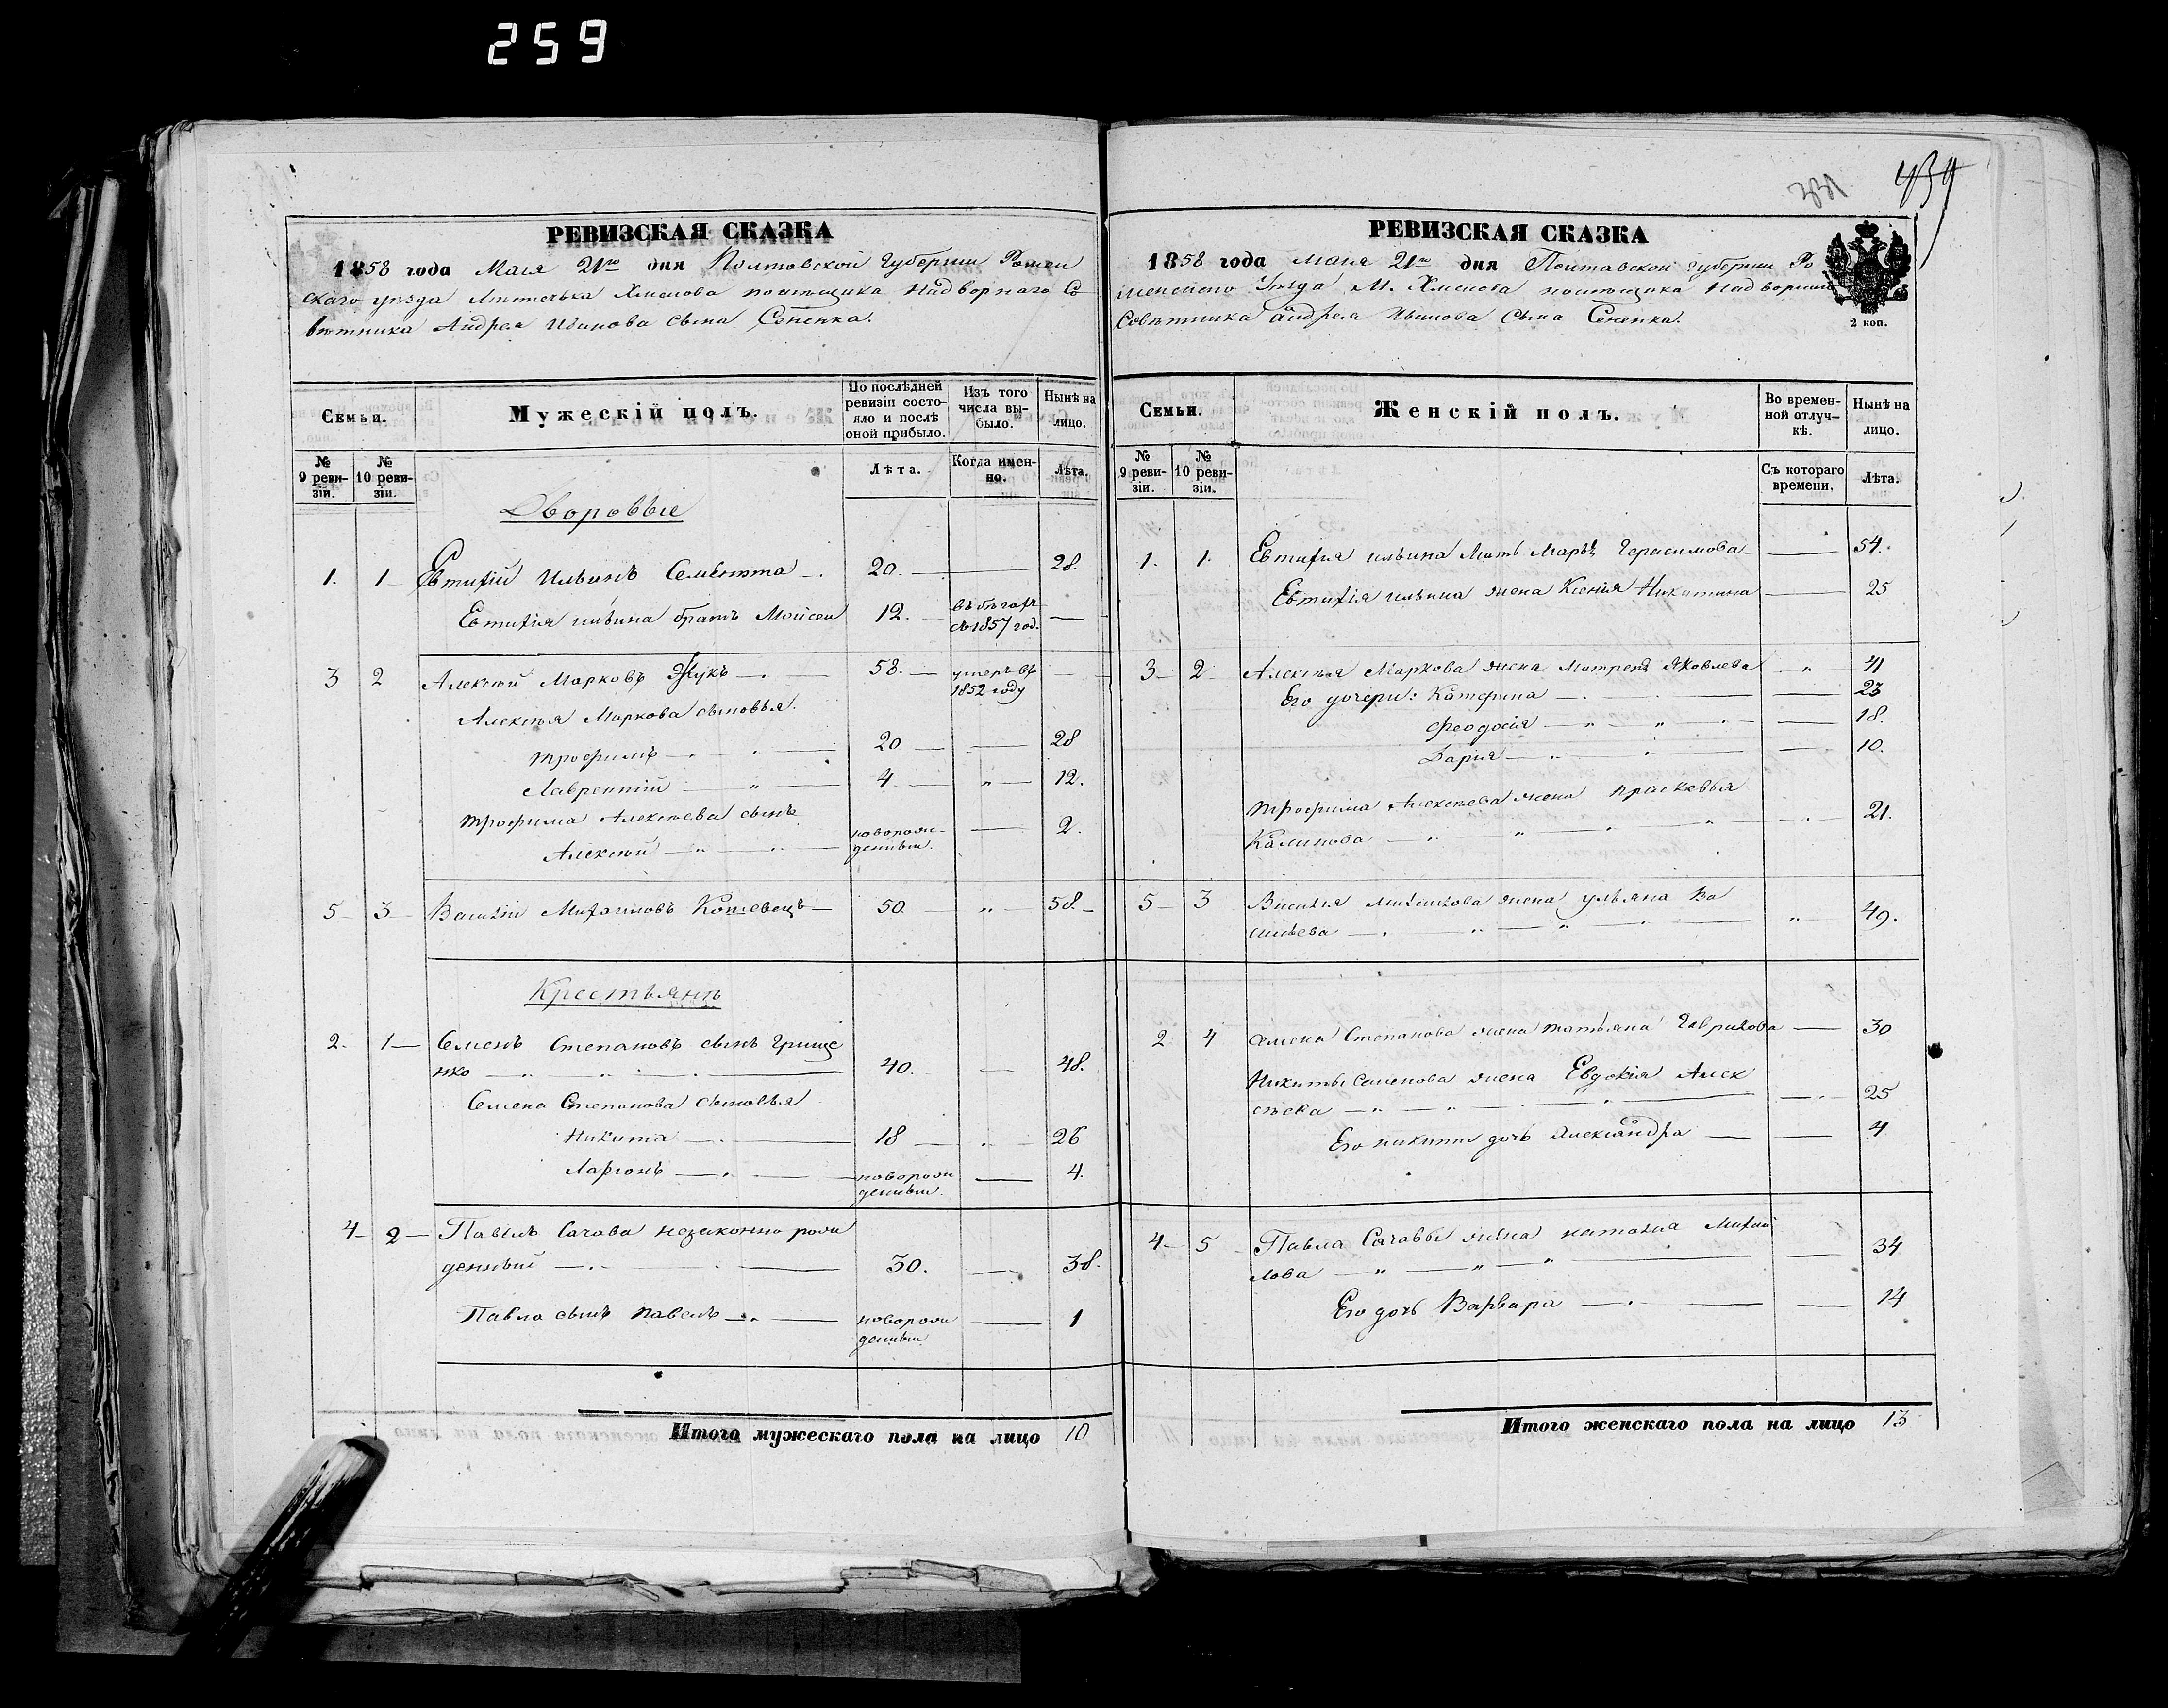 259
439
РЕВИЗСКАЯ СКАЗКА
1858 года Мая 21го дня Полтавской Губернии Ромен
скаго уѣзда Мѣстечка Хмелова помѣщика Надворнаго Со
вѣтника Андрея Иванова сына Сененка.
Семьи.
Мужескій полъ.
По послѣдней ревизіи состояло и послѣ оной прибыло.
Изъ того числа выбыло.
Нынѣ на лицо.
№ 9 ревизіи.
№ 10 ревизіи.
Лѣта.
Когда именно.
Лѣта.
Дворовые
1. 1 Евтихій Ильинъ 20. 28.
Евтихія ильина братъ Моисей 12. въ бѣгахъ
съ 1857 год.
3 2 Алексѣй Марковъ Жукъ 58. умеръ въ
1852 году
Алексѣя Маркова сыновья.
трофимъ 20 28
Лаврентій 4 " 12.
трофима Алексѣева сынъ
Алексѣй новорож-
денный. 2.
5 3 Василій Михайловъ 50 " 58.
Крестьянѣ
2. 1 Семенъ Степановъ сынъ Грище
нко 40. 48.
Семена Степанова сыновья
Никита 18 26
Ларіонъ новорож
денный. 4.
4 2 Павелъ Сачава незаконно рож
денный 30. 38.
Павла сынъ павелъ новорож
денный 1
Итого мужескаго пола на лицо 10
РЕВИЗСКАЯ СКАЗКА
1858 года мая 21го дня Полтавской губерніи Ро
менскаго Уѣзда М. Хмелова помѣщика Надворнаго
Совѣтника андрея Иванова Сына Сененка.
2 коп.
Семьи.
Женскій полъ.
Во временной отлучкѣ.
Нынѣ на лицо.
№ 9 ревизіи.
№ 10 ревизіи.
Съ котораго времени.
Лѣта.
1. 1. Евтихія ильина Мать Марья Герасимова 54.
Евтихія ильина жена Ксенія Никитина 25
3 2 Алексѣя Маркова жена Матрена Яковлева " 41
Его дочери: Катерина 23
Феодосія 18.
Дарья 10.
трофима Алексѣева жена прасковья
Калинова 21.
5 3 Василія михайлова жена ульяна Ва
сильева " 49.
2 4 Семена Степанова жена татьяна Гаврилова 30
Никиты Семенова жена Евдокія Алек
сѣева 25
Его никиты дочь Александра 4
4 5 Павла Сачавы жена наталія Михай
лова 34
Его дочь Варвара 14
Итого женскаго пола на лицо 13